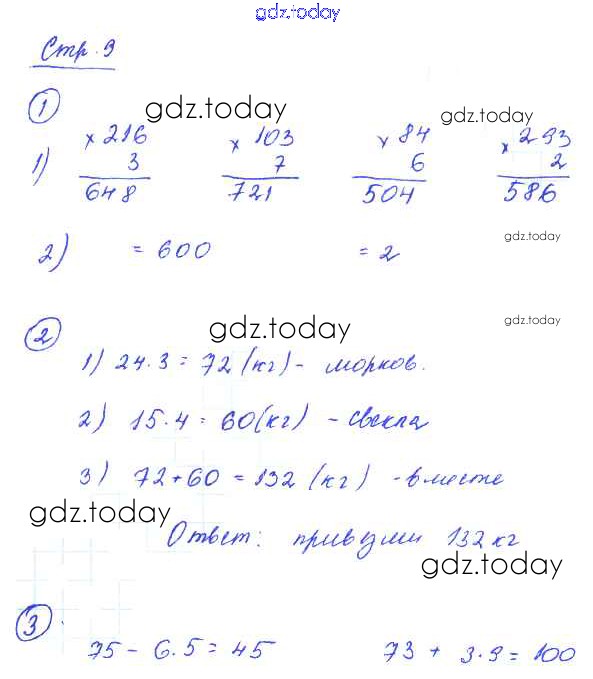 gdz.today
Стр. 9
gdz.today
1
gdz.today
1) × 216 × 103 × 84 × 293
3 7 6 2
648 721 504 586
2) = 600 = 2
gdz.today
2
gdz.today
gdz.today
1) 24·3 = 72 (кг) - морков.
2) 15·4 = 60 (кг) - свекла
3) 72+60 = 132 (кг) - вместе
gdz.today
Ответ: привезли 132 кг
gdz.today
3
75 - 6·5 = 45 73 + 3·9 = 100